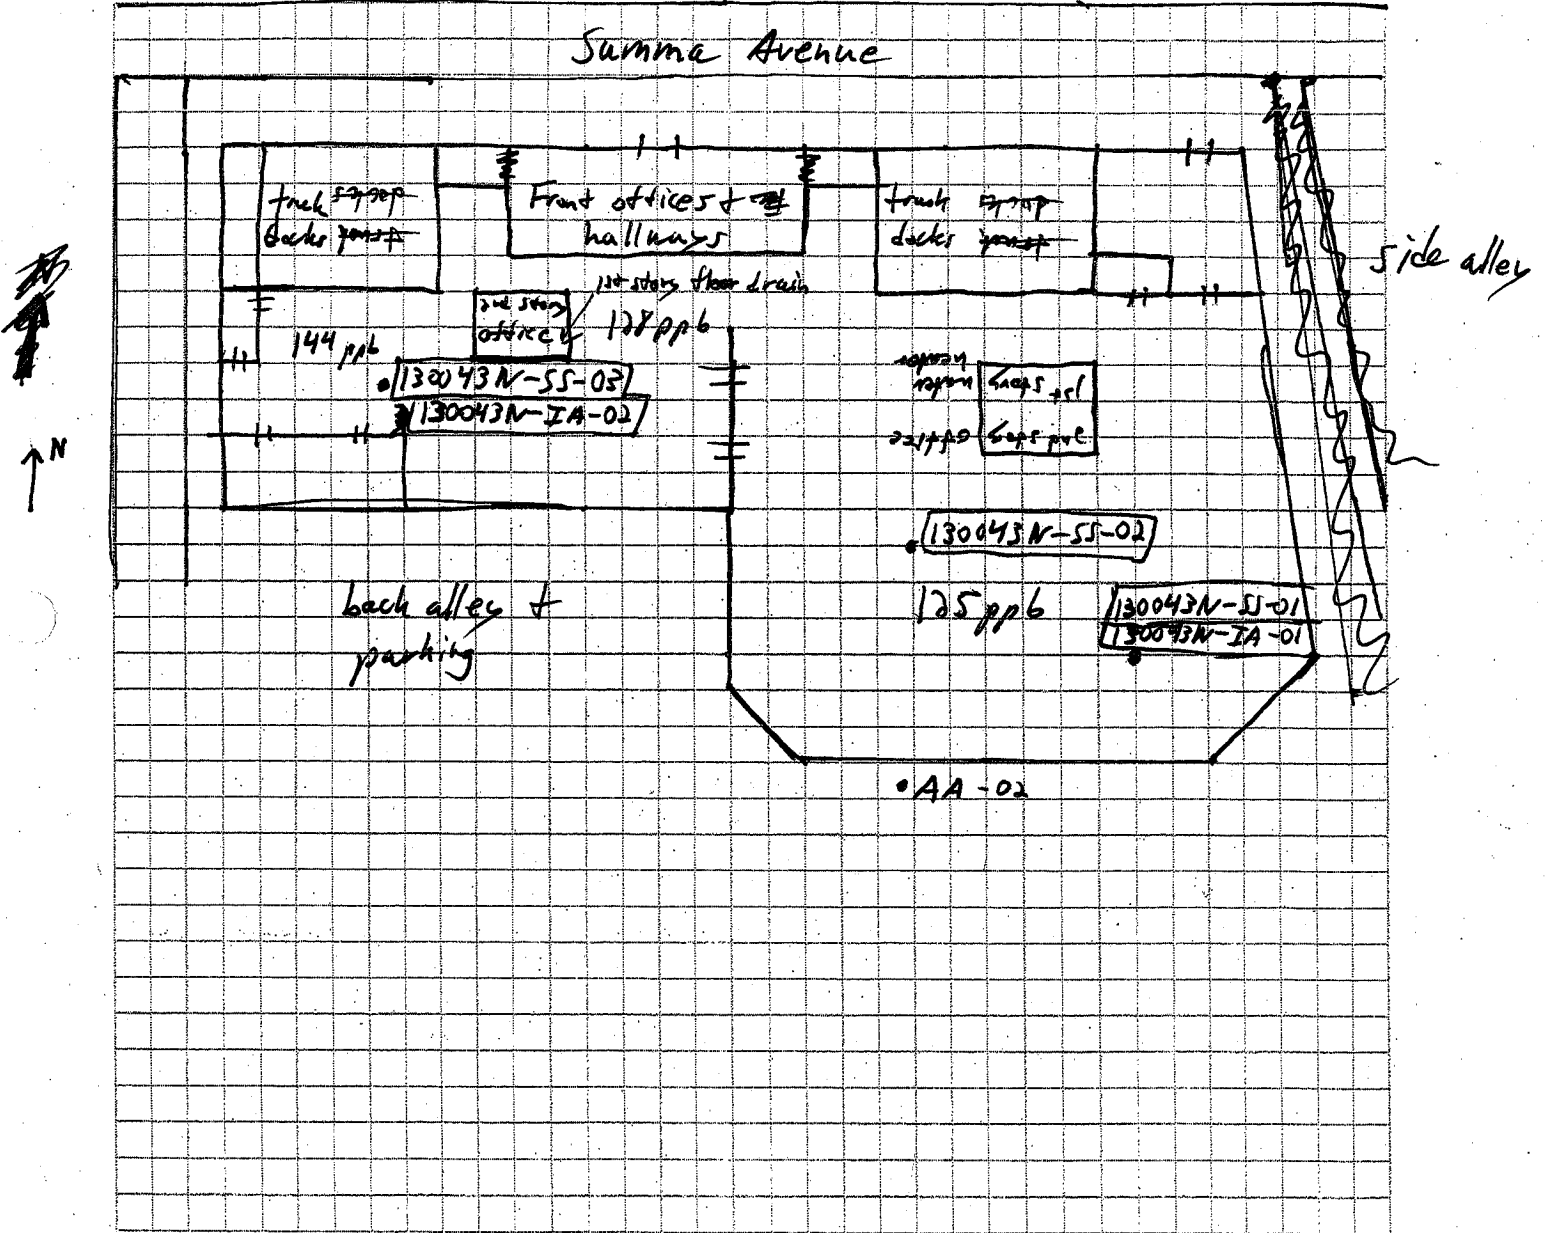 Summa Avenue
truck
docks
Front offices +
hallways
truck
docks
side alley
1st story floor drain
2nd story
office
128 ppb
144 ppb
130043N-SS-03
130043N-IA-02
heater
water
1st story
2nd story
office
N
130043N-SS-02
125 ppb
130043N-SS-01
130043N-IA-01
back alley +
parking
AA-02